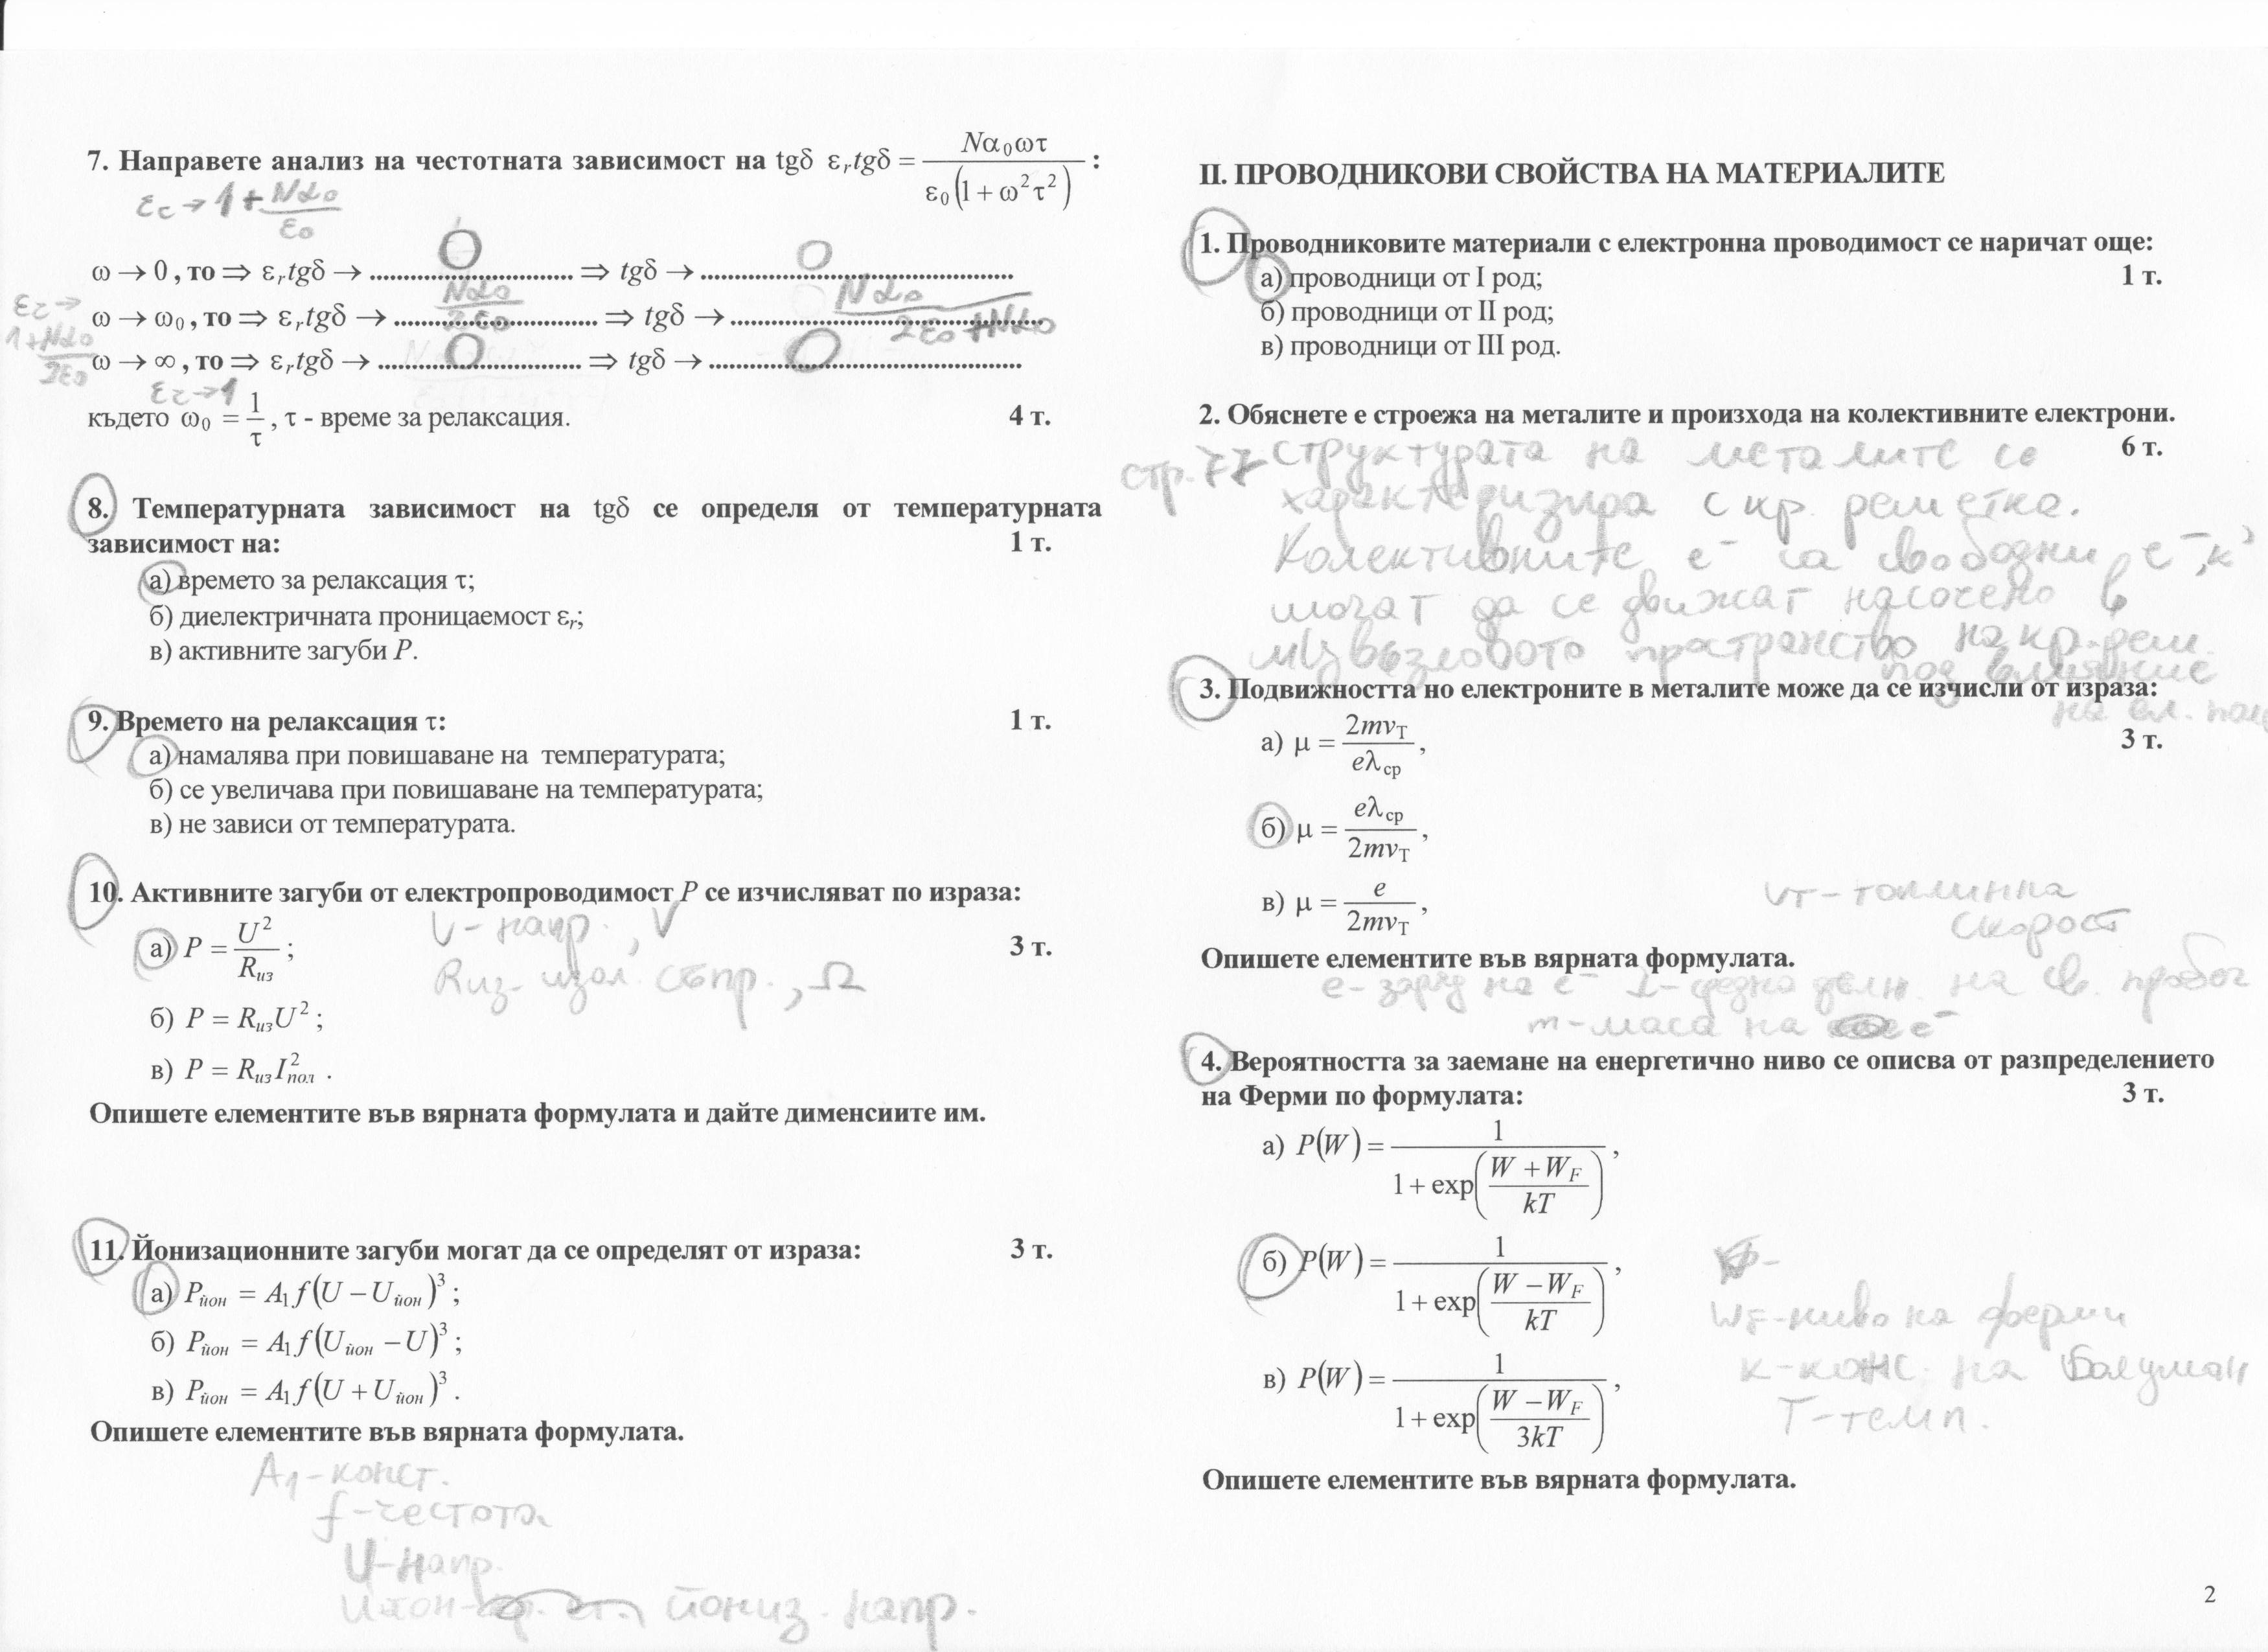 7. Направете анализ на честотната зависимост на tgδ ε_r tgδ = Nα₀ωτ / ε₀(1 + ω²τ²) :
εr → 1 + Nα₀ / ε₀
ω → 0 , то ⇒ ε_r tgδ → ..... 0 ..... ⇒ tgδ → ..... 0 .....
εr →
1+Nα₀ / 2ε₀
ω → ω₀ , то ⇒ ε_r tgδ → ..... Nα₀ / 2ε₀ ..... ⇒ tgδ → ..... Nα₀ / 2ε₀+Nα₀ .....
ω → ∞ , то ⇒ ε_r tgδ → ..... 0 ..... ⇒ tgδ → ..... 0 .....
εr → 1
където ω₀ = 1/τ , τ - време за релаксация. 4 т.
8. Температурната зависимост на tgδ се определя от температурната
зависимост на: 1 т.
а) времето за релаксация τ;
б) диелектричната проницаемост ε_r;
в) активните загуби P.
9. Времето на релаксация τ: 1 т.
а) намалява при повишаване на температурата;
б) се увеличава при повишаване на температурата;
в) не зависи от температурата.
10. Активните загуби от електропроводимост P се изчисляват по израза:
а) P = U² / R_из ; 3 т.
U - напр., V
Rиз - изол. съпр., Ω
б) P = R_из U² ;
в) P = R_из I²_пол .
Опишете елементите във вярната формулата и дайте дименсиите им.
11. Йонизационните загуби могат да се определят от израза: 3 т.
а) P_йон = A₁ f (U − U_йон)³ ;
б) P_йон = A₁ f (U_йон − U)³ ;
в) P_йон = A₁ f (U + U_йон)³ .
Опишете елементите във вярната формулата.
A₁ - конст.
f - честота
U - напр.
Uйон - йониз. напр.
II. ПРОВОДНИКОВИ СВОЙСТВА НА МАТЕРИАЛИТЕ
1. Проводниковите материали с електронна проводимост се наричат още:
а) проводници от I род; 1 т.
б) проводници от II род;
в) проводници от III род.
2. Обяснете е строежа на металите и произхода на колективните електрони.
6 т.
стр. 77 структурата на металите се
характеризира с кр. решетка.
Колективните е⁻ са свободни е⁻, к
могат да се движат насочено в
м/у възловото пространство на кр. реш.
под влияние
на ел. поле
3. Подвижността но електроните в металите може да се изчисли от израза:
а) μ = 2mv_T / eλ_ср , 3 т.
б) μ = eλ_ср / 2mv_T ,
в) μ = e / 2mv_T ,
vт - топлинна
скорост
Опишете елементите във вярната формулата.
е - заряд на е⁻ λ - средна дълж. на св. пробег
m - маса на е⁻
4. Вероятността за заемане на енергетично ниво се описва от разпределението
на Ферми по формулата: 3 т.
а) P(W) = 1 / 1 + exp( W + W_F / kT ) ,
б) P(W) = 1 / 1 + exp( W − W_F / kT ) ,
WF - ниво на ферми
к - конс. на Болцман
в) P(W) = 1 / 1 + exp( W − W_F / 3kT ) ,
Т - темп.
Опишете елементите във вярната формулата.
2